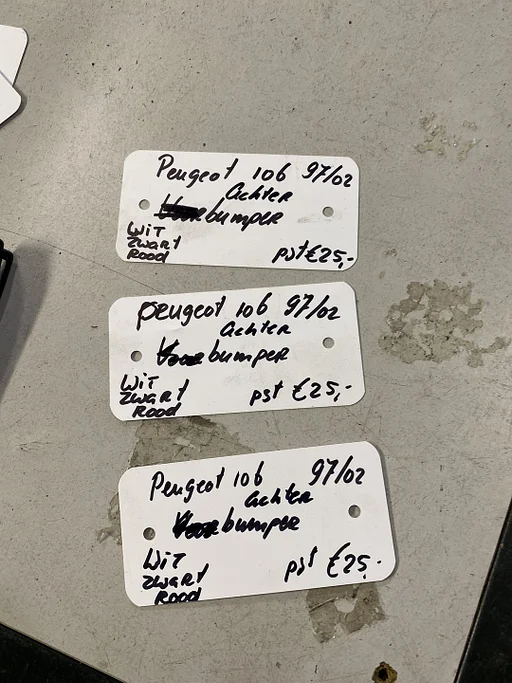 Peugeot 106 97/02
Achter
bumper
WiT
Zwart
Rood
pst €25,-
peugeot 106 97/02
Achter
bumper
WiT
Zwart
Rood
pst €25,-
Peugeot 106 97/02
Achter
bumper
WiT
Zwart
Rood
pst €25,-